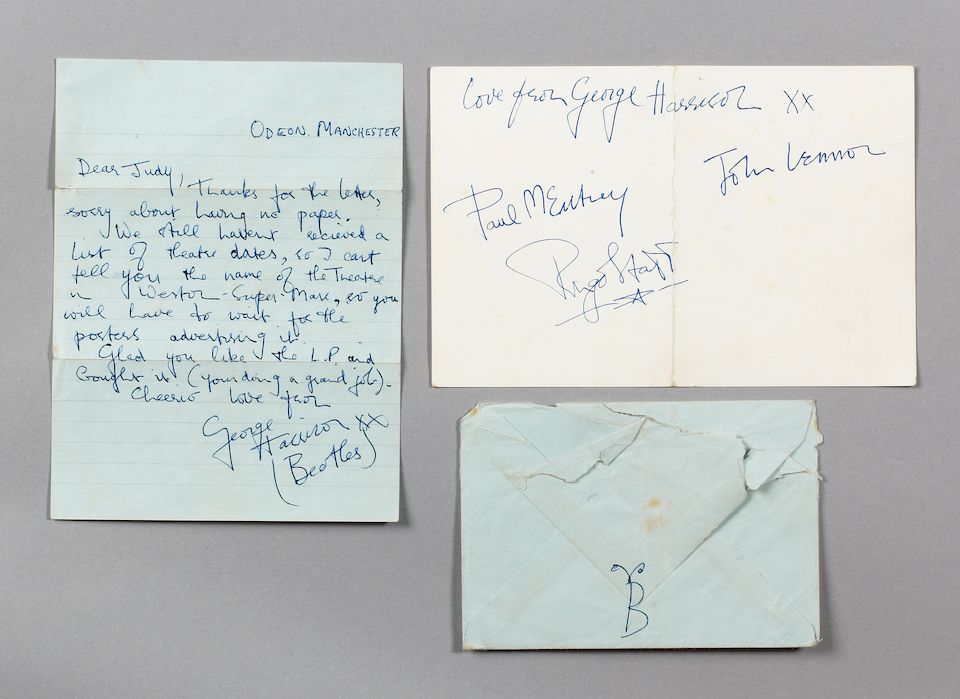 ODEON. MANCHESTER
Dear Judy,
Thanks for the letter,
sorry about having no paper.
We still havent recieved a
list of theatre dates, so I cant
tell you the name of the Theatre
in Weston-Super-Mare, so you
will have to wait for the
posters advertising it.
Glad you like the L.P. and
bought it. (your doing a grand job).
Cheerio love from
George
Harrison XX
(Beatles)
Love from George Harrison XX
John Lennon
Paul McCartney
Ringo Starr
B